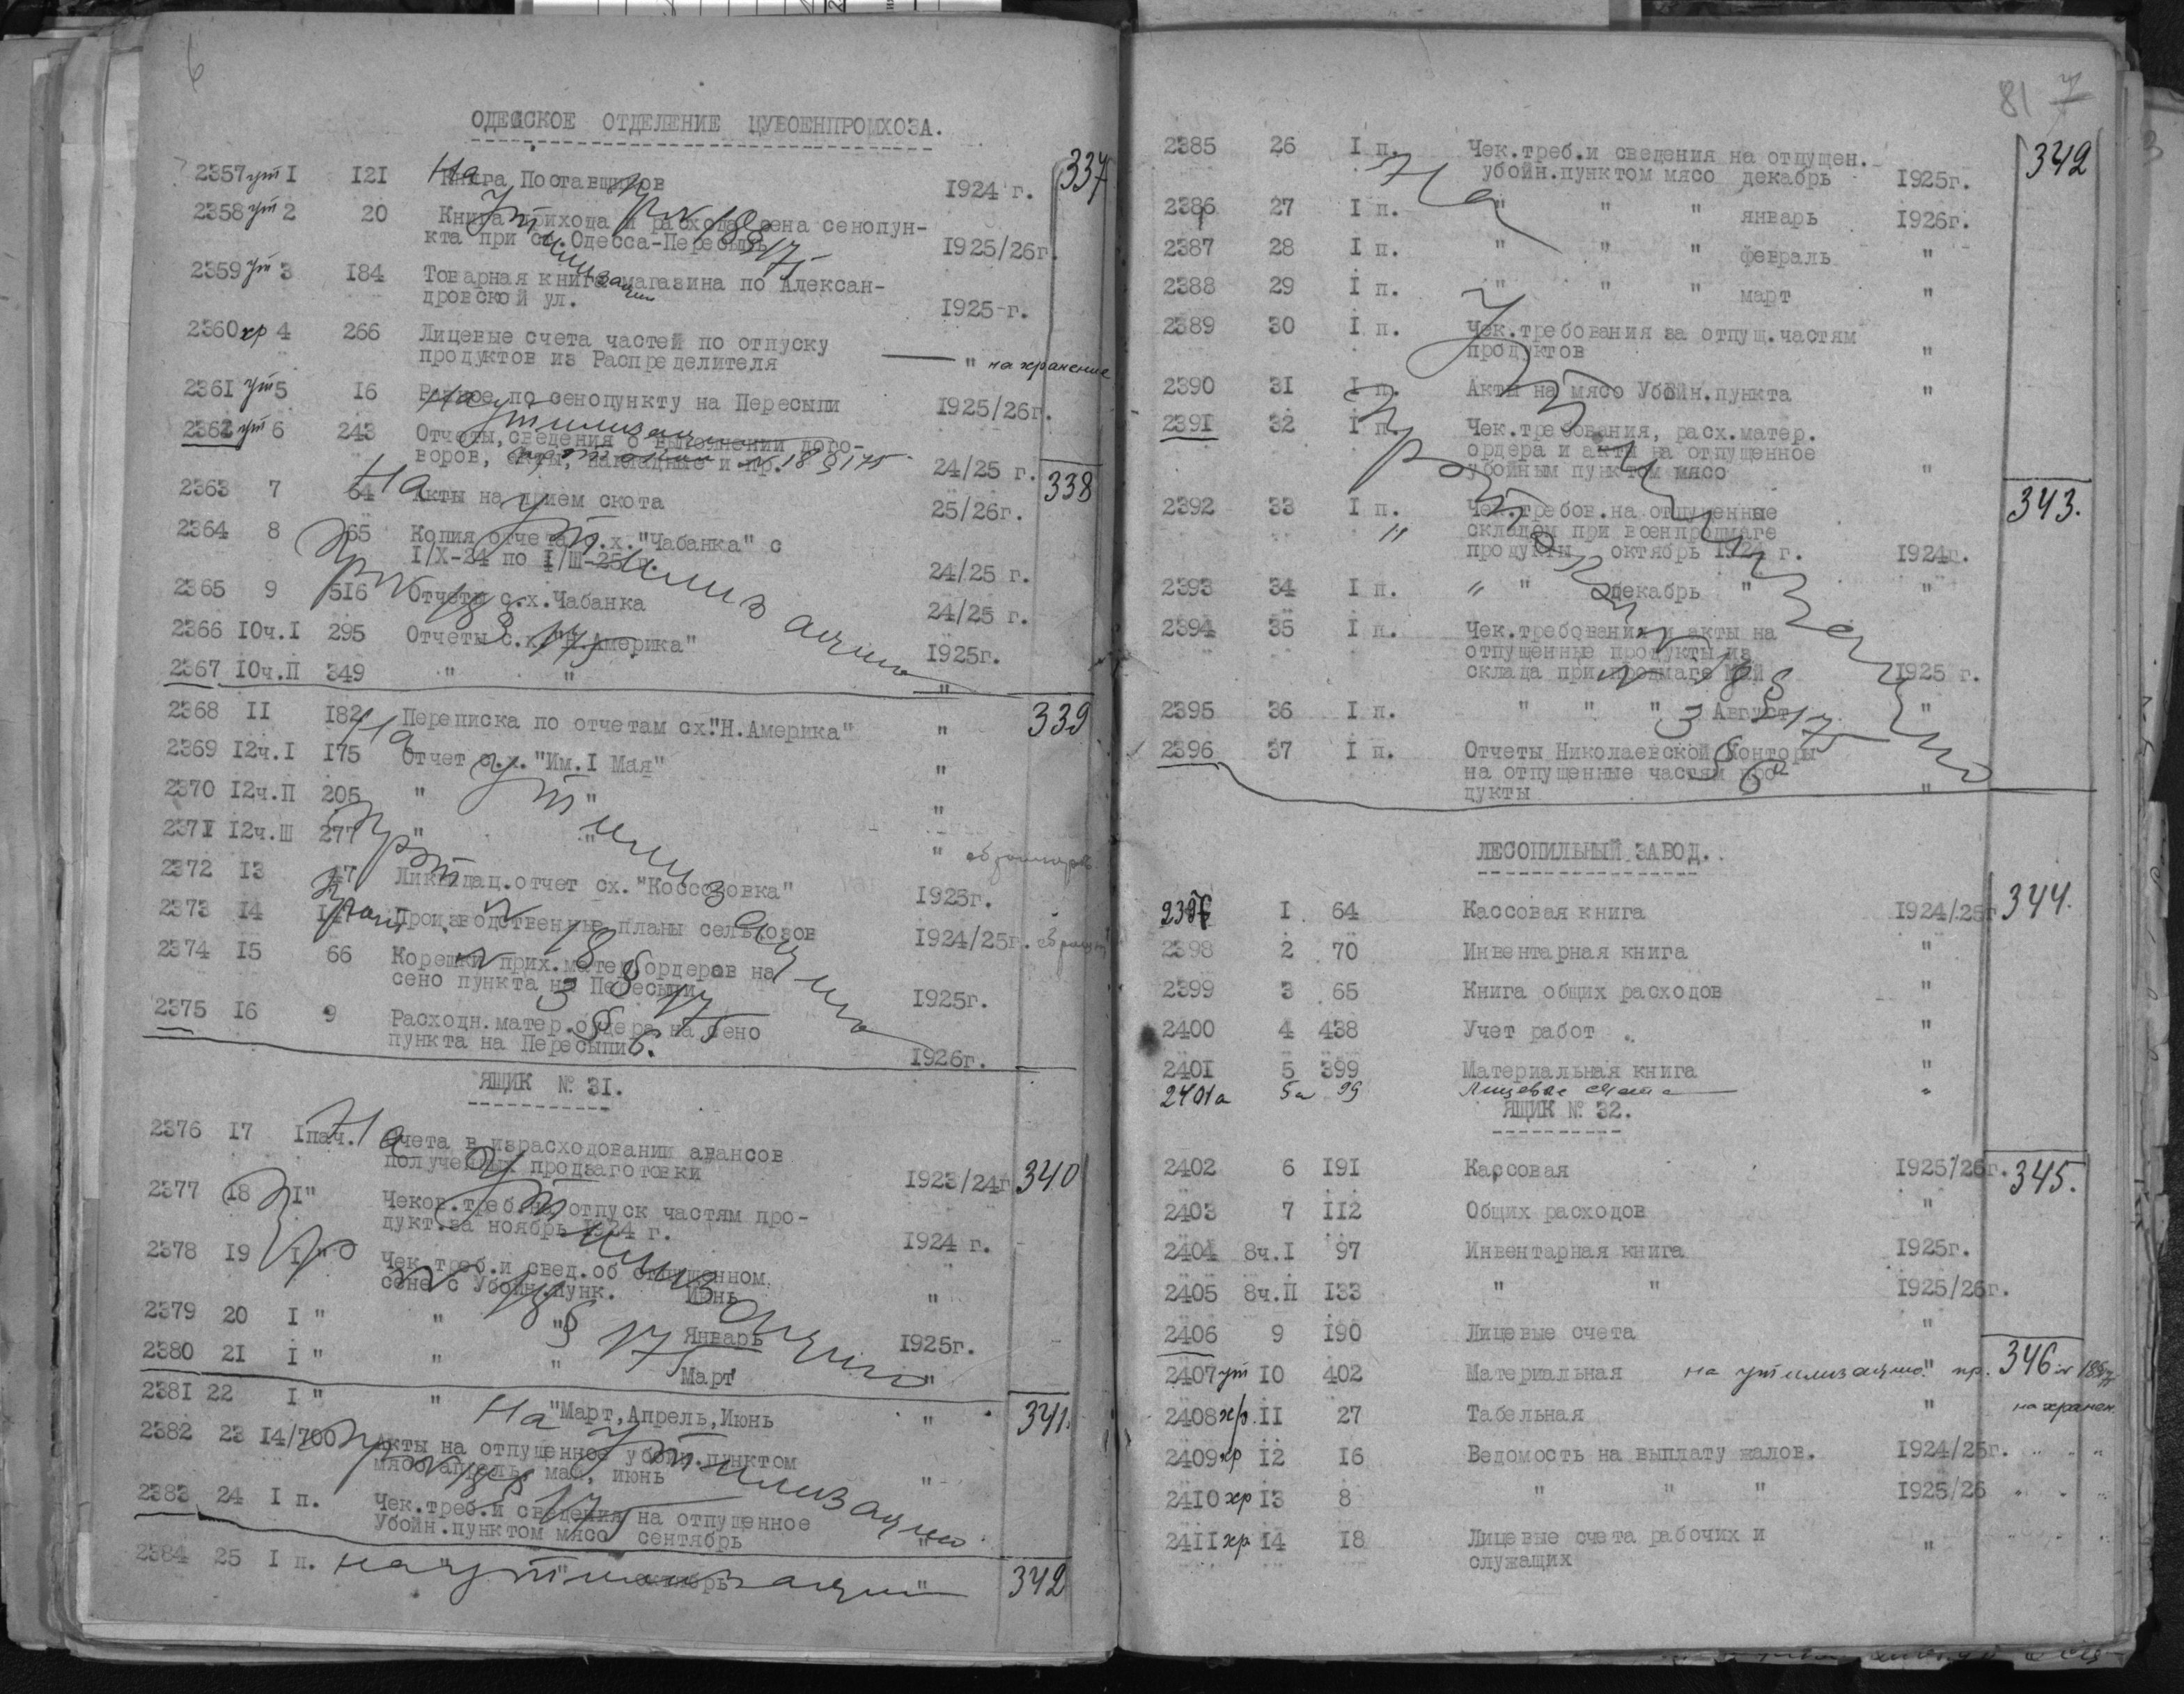 6
ОДЕССКОЕ ОТДЕЛЕНИЕ ЦУВОЕНПРОМХОЗА.
2357 ут I 121 Книга Поставщиков 1924 г. 337
На утилизацию
пр N 18 § 175
2358 ут 2 20 Книга прихода и расхода сена сенопун-
кта при ст.Одесса-Пересыпь 1925/26г.
2359 ут 3 184 Товарная книга магазина по Алексан-
дровской ул. 1925 г.
2360 хр 4 266 Лицевые счета частей по отпуску
продуктов из Распределителя " на хранение
2361 ут 5 16 Разное по сенопункту на Пересыпи 1925/26г.
На утилизацию
2362 ут 6 243 Отчеты, сведения о выполнении дого-
воров, акты, накладные и пр. 24/25 г.
N 18 § 175
338
2363 7 64 Акты на прием скота 25/26г.
На утилизацию
2364 8 65 Копия отчета с.х."Чабанка" с
I/X-24 по I/Ш-25 г. 24/25 г.
2365 9 516 Отчеты с.х.Чабанка 24/25 г.
пр N 18 § 175
2366 10ч.I 295 Отчеты с.х."Н.Америка" 1925г.
2367 10ч.П 349 " " "
2368 II 182 Переписка по отчетам сх."Н.Америка" " 339
На утилизацию
2369 12ч.I 175 Отчет с.х. "Им.I Мая" "
2370 12ч.П 205 " " "
2371 12ч.Ш 277 " " "
2372 13 47 Ликвидац.отчет сх. "Коссозовка" 1925г.
2373 14 Производственные планы сельхозов 1924/25г.
2374 15 66 Корешки прих.матер.ордеров на
сено пункта на Пересыпи 1925г.
N 18 § 175
3 § 6.
2375 16 9 Расходн.матер.ордера на сено
пункта на Пересыпи 1926г.
ЯЩИК № 31.
2376 17 Iпач. Счета в израсходовании авансов
полученных продзаготовки 1923/24г 340
На утилизацию
2377 18 I" Чеков.треб.на отпуск частям про-
дукт.за ноябрь 1924 г. 1924 г.
2378 19 I " Чек.треб.и свед.об отпущенном
сене с Убойн.пунк. Июнь "
пр N 18 § 175
2379 20 I " " " Январь 1925г.
2380 21 I " " " Март "
2381 22 I " " " Март,Апрель,Июнь " 341.
На утилизацию
2382 23 14/700 Акты на отпущенное убойн.пунктом
мясо апрель, май, июнь "
пр N 18 § 175
2383 24 I п. Чек.треб.и сведения на отпущенное
Убойн.пунктом мясо сентябрь "
2384 25 I п. " " октябрь " 342
на утилизацию
81 7
2385 26 I п. Чек.треб.и сведения на отпущен.
убойн.пунктом мясо декабрь 1925г. 342
На утилизацию
2386 27 I п. " " " январь 1926г.
2387 28 I п. " " " февраль "
2388 29 I п. " " " март "
2389 30 I п. Чек.требования за отпущ.частям
продуктов "
2390 31 I п. Акты на мясо Убойн.пункта "
2391 32 I п. Чек.требования, расх.матер.
ордера и акты на отпущенное
убойным пунктом мясо "
2392 33 I п. Чек.требов.на отпущенные
складом при военпродмаге
продукты октябрь 1924 г. 1924г. 343.
2393 34 I п. " " Декабрь " "
2394 35 I п. Чек.требования и акты на
отпущенные продукты из
склада при продмаге Май 1925 г.
N 18 § 175
3 § 6
2395 36 I п. " " " Август "
2396 37 I п. Отчеты Николаевской Конторы
на отпущенные частям про-
дукты "
ЛЕСОПИЛЬНЫЙ ЗАВОД.
2397 I 64 Кассовая книга 1924/25г 344.
2398 2 70 Инвентарная книга "
2399 3 65 Книга общих расходов "
2400 4 438 Учет работ "
2401 5 399 Материальная книга "
2401а 5а 99 Лицевые счета "
ЯЩИК № 32.
2402 6 191 Кассовая 1925/26г. 345.
2403 7 112 Общих расходов "
2404 8ч.I 97 Инвентарная книга 1925г.
2405 8ч.П 133 " " 1925/26г.
2406 9 190 Лицевые счета "
2407 ут 10 402 Материальная на утилизацию " пр. 346
2408 хр. II 27 Табельная " на хранен.
2409 хр 12 16 Ведомость на выплату жалов. 1924/25г. " "
2410 хр 13 8 " " " 1925/26 " "
2411 хр 14 18 Лицевые счета рабочих и
служащих "